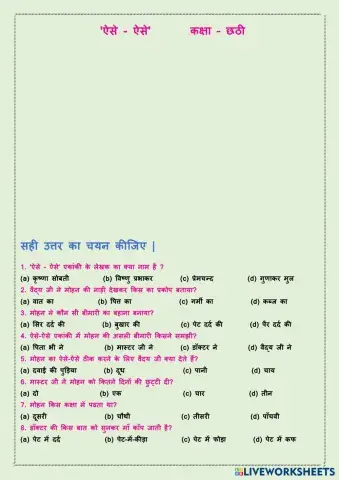 'ऐसे - ऐसे' कक्षा - छठी
सही उत्तर का चयन कीजिए |
1. 'ऐसे - ऐसे' एकांकी के लेखक का क्या नाम है ?
(a) कृष्णा सोबती (b) विष्णु प्रभाकर (c) प्रेमचन्द (d) गुणाकर मुल
2. वैद्य जी ने मोहन की नाड़ी देखकर किस का प्रकोप बताया?
(a) वात का (b) पित का (c) गर्मी का (d) कब्ज का
3. मोहन ने कौन सी बीमारी का बहाना बनाया?
(a) सिर दर्द की (b) बुखार की (c) पेट दर्द की (d) पैर दर्द की
4. ऐसे-ऐसे एकांकी में मोहन की असली बीमारी किसने समझी?
(a) पिता जी ने (b) मास्टर जी ने (c) डॉक्टर ने (d) वैद्य जी ने
5. मोहन का ऐसे-ऐसे ठीक करने के लिए वैद्य जी क्या देते हैं?
(a) दवाई की पुड़िया (b) दूध (c) पानी (d) चाय
6. मास्टर जी ने मोहन को कितने दिनों की छुट्टी दी?
(a) दो (b) एक (c) चार (d) तीन
7. मोहन किस कक्षा में पढता था?
(a) दूसरी (b) चौथी (c) तीसरी (d) पाँचवी
8. डॉक्टर की किस बात को सुनकर माँ काँप जाती है?
(a) पेट में दर्द (b) पेट-में-कीड़ा (c) पेट में फोड़ा (d) पेट में कफ
LIVEWORKSHEETS